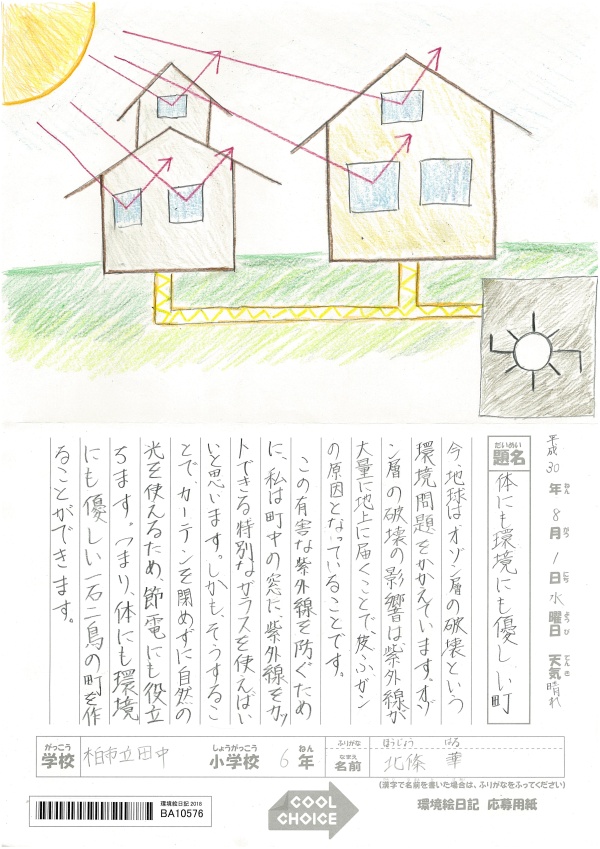 平成30年8月1日水曜日 天気晴れ
ねん がつ にち ようび てんき
だいめい
題名 体にも環境にも優しい町
今、地球はオゾン層の破壊という
環境問題をかかえています。オゾ
ン層の破壊の影響は紫外線が
大量に地上に届くことで、皮ふガン
の原因となっていることです。
この有害な紫外線を防ぐため
に、私は町中の窓に、紫外線をカッ
トできる特別なガラスを使えばい
いと思います。しかも、そうするこ
とで、カーテンを閉めずに自然の
光を使えるため、節電にも役立
ちます。つまり、体にも環境
にも優しい一石二鳥の町を作
ることができます。
がっこう しょうがっこう ねん ふりがな ほうじょう はる
学校 柏市立田中 小学校 6年 なまえ 名前 北條 華
(漢字で名前を書いた場合は、ふりがなをふってください)
環境絵日記 2018
BA10576
COOL
CHOICE
環境絵日記 応募用紙